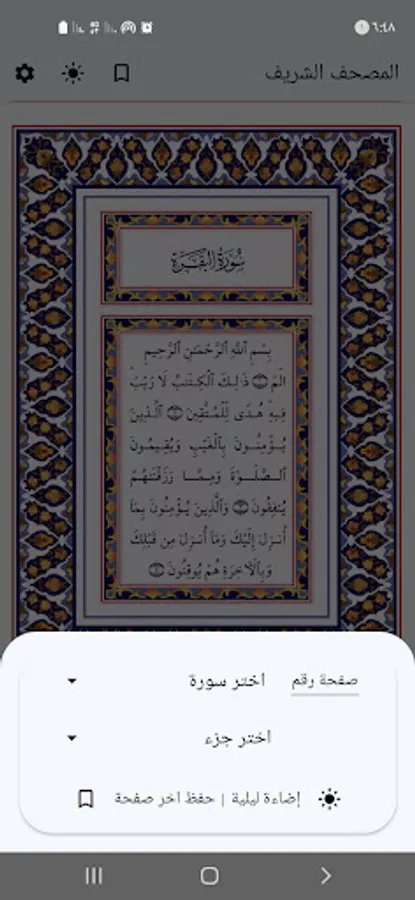 ٦:٤٨
المصحف الشريف
سُورَةُ البَقَرَةِ
بِسْمِ ٱللَّهِ ٱلرَّحْمَٰنِ ٱلرَّحِيمِ
الٓمٓ ۝١ ذَٰلِكَ ٱلْكِتَٰبُ لَا رَيْبَۛ
فِيهِۛ هُدًى لِّلْمُتَّقِينَ ۝٢ ٱلَّذِينَ
يُؤْمِنُونَ بِٱلْغَيْبِ وَيُقِيمُونَ
ٱلصَّلَوٰةَ وَمِمَّا رَزَقْنَٰهُمْ
يُنفِقُونَ ۝٣ وَٱلَّذِينَ يُؤْمِنُونَ بِمَآ
أُنزِلَ إِلَيْكَ وَمَآ أُنزِلَ مِن قَبْلِكَ
وَبِٱلْءَاخِرَةِ هُمْ يُوقِنُونَ ۝٤
صفحة رقم اختر سورة
اختر جزء
إضاءة ليلية | حفظ اخر صفحة